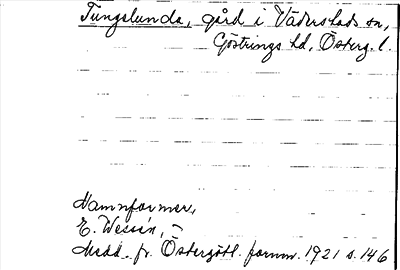 Tungslunda, gård i Väderstads sn,
Göstrings hd, Österg. l.
Namnformer,
E. Wessén, –
Medd. fr. Östergötl. fornm. 1921 s. 146